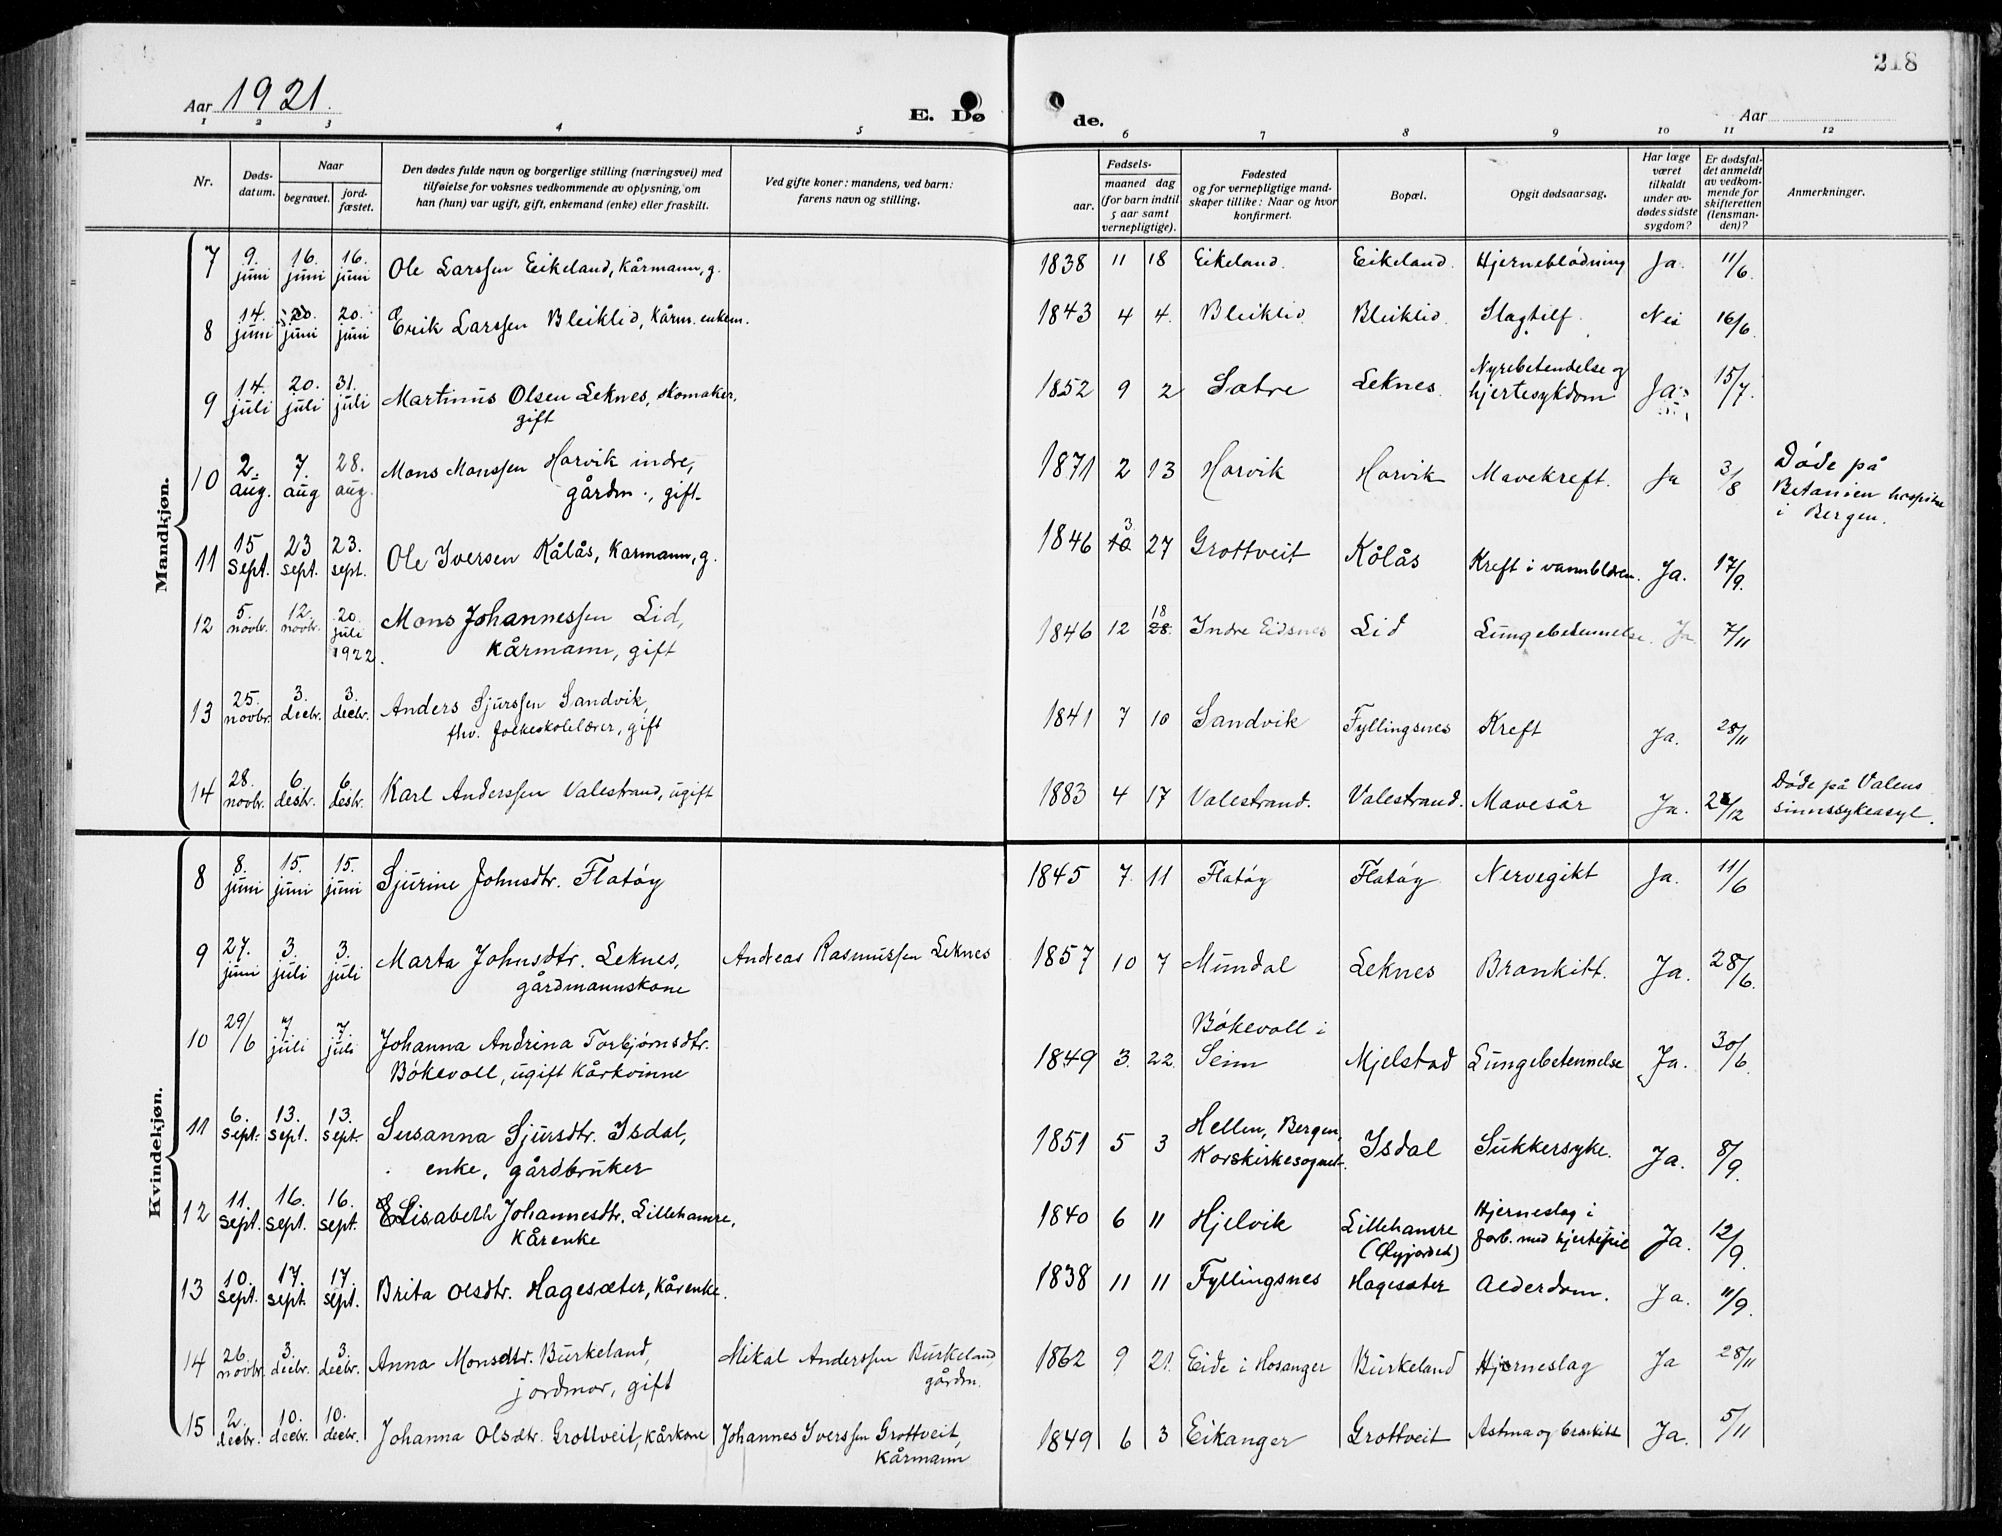 218
Aar 1921.
E. Døde.
Aar
1 2 3 4 5 6 7 8 9 10 11 12
Nr.
Døds-
datum.
Naar
begravet.
jord-
fæstet.
Den dødes fulde navn og borgerlige stilling (næringsvei) med
tilføielse for voksnes vedkommende av oplysning, om
han (hun) var ugift, gift, enkemand (enke) eller fraskilt.
Ved gifte koner: mandens, ved barn:
farens navn og stilling.
Fødsels-
aar.
maaned dag
(for barn indtil
5 aar samt
vernepligtige).
Fødested
og for vernepligtige mand-
skaper tillike: Naar og hvor
konfirmert.
Bopæl.
Opgit dødsaarsag.
Har læge
været
tilkaldt
under av-
dødes sidste
sygdom?
Er dødsfal-
det anmeldt
av vedkom-
mende for
skifteretten
(lensman-
den)?
Anmerkninger.
Mandkjøn.
7 9. juni 16. juni 16. juni Ole Larssen Eikeland, kårmann, g. 1838 11 18 Eikeland. Eikeland. Hjerneblødning Ja. 11/6.
8 14. juni 20. juni 20. juni Erik Larssen Bleiklid, kårm. enkem. 1843 4 4. Bleiklid. Bleiklid. Slagtilf. Nei 16/6.
9 14. juli 20. juli 31. juli Martinus Olsen Leknes, skomaker, 1852 9 2 Sætre Leknes. Nyrebetendelse og
gift hjertesykdom Ja. 15/7.
10 2. aug. 7. aug 28. aug. Mons Monssen Horvik indre, 1871 2 13 Horvik Horvik Mavekreft. Ja 3/8 Døde på
gårdm., gift. Betanien hospital
i Bergen.
11 15 sept. 23 sept. 23. sept. Ole Iversen Kålås, Karmann, g. 1846 10 3 27 Grottveit Kålås Kreft i vannblæren. Ja. 17/9.
12 5. novbr. 12. novbr. 20. juli 1922. Mons Johannessen Lid, 1846 12 28. 18 Indre Eidsnes Lid Lungebetennelse. Ja 7/11
kårmann, gift
13 25. novbr. 3. decbr. 3. decbr. Anders Sjurssen Sandvik, 1841 7 10 Sandvik Fyllingsnes Kreft Ja. 28/11
fhv. folkeskolelærer, gift
14 28. novbr. 6. desbr. 6. desbr. Karl Anderssen Valestrand, ugift 1883 4 17 Valestrand. Valestrand. Mavesår Ja. /12 Døde på Valens
sinnssykeasyl.
Kvindekjøn.
8 8. juni 15. juni 15. juni Sjurine Johnsdtr. Flatøy 1845 7. 11 Flatøy Flatøy Nervegikt Ja. 11/6
9 27. juni 3. juli 3. juli Marta Johnsdtr. Leknes, Andreas Rasmussen Leknes 1857 10 7 Mundal Leknes Bronkitt. Ja. 28/6.
gårdmannskone
10 29/6 7 juli 7 juli Johanna Andrina Torbjørnsdtr. 1849 3. 22. Bøkevoll i
Seim Mjelstad Lungebetennelse Ja. 30/6.
Bøkevoll, ugift kårkvinne
11 6. sept. 13. sept. 13. sept. Susanna Sjursdtr. Isdal, 1851 5 3 Hellen, Bergen,
Korskirkesognet. Isdal Sukkersyke. Ja. 8/9.
enke, gårdbruker
12 11. sept. 16. sept. 16. sept. Elisabeth Johannesdtr. Lillehamre, 1840 6 11 Hjelvik Lillehamre Hjerneslag i
kårenke forb. med hjertefeil Ja. 12/9.
13 10. sept. 17. sept. 17. sept. Brita Olsdtr. Hagesæter, kårenke. 1838 11 11 Fyllingsnes Hagesæter Alderdom. Ja. 11/9.
14 26. novbr. 3. decbr. 3. decbr. Anna Monsdtr. Burkeland, Mikal Anderssen Burkeland 1862 9 21. Eide i Hosanger Burkeland Hjerneslag Ja 28/11
jordmor, gift gårdm.
15 2. decbr. 10. decbr. 10. decbr. Johanna Olsdtr. Grottveit, kårkone Johannes Iverssen Grottveit, 1849 6 3 Eikanger Grottveit Astma og bronkitt Ja. 5/11
kårmann